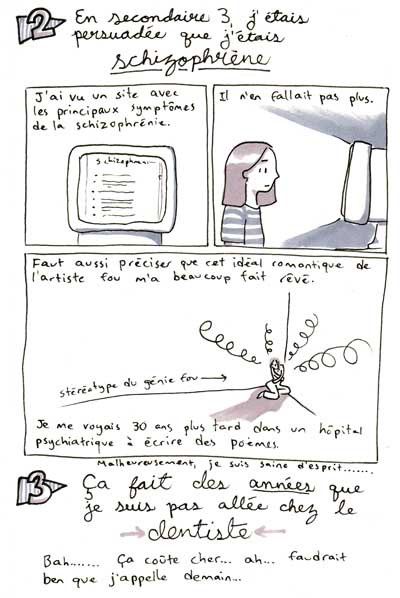 2 En secondaire 3, j'étais
persuadée que j'étais
schizophrène
J'ai vu un site avec
les principaux symptômes
de la schizophrénie.
Schizophren....
Il n'en fallait pas plus.
Faut aussi préciser que cet idéal romantique de
l'artiste fou m'a beaucoup fait rêvé.
stéréotype du génie fou →
Je me voyais 30 ans plus tard dans un hôpital
psychiatrique à écrire des poèmes.
Malheureusement, je suis saine d'esprit.......
3 Ça fait des années que
je suis pas allée chez le
→ dentiste ←
Bah....... Ça coûte cher... ah... faudrait
ben que j'appelle demain...